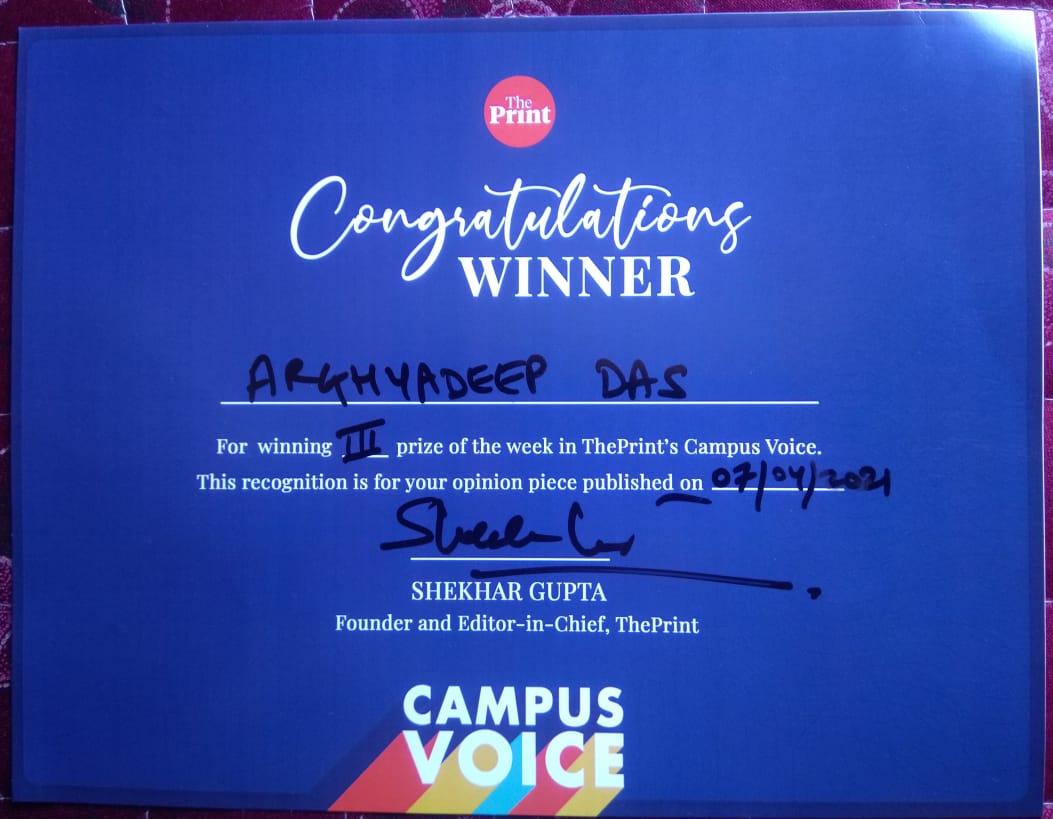 The
Print
Congratulations
WINNER
ARGHYADEEP DAS
For winning III prize of the week in ThePrint's Campus Voice.
This recognition is for your opinion piece published on 07/04/2021
SHEKHAR GUPTA
Founder and Editor-in-Chief, ThePrint
CAMPUS
VOICE